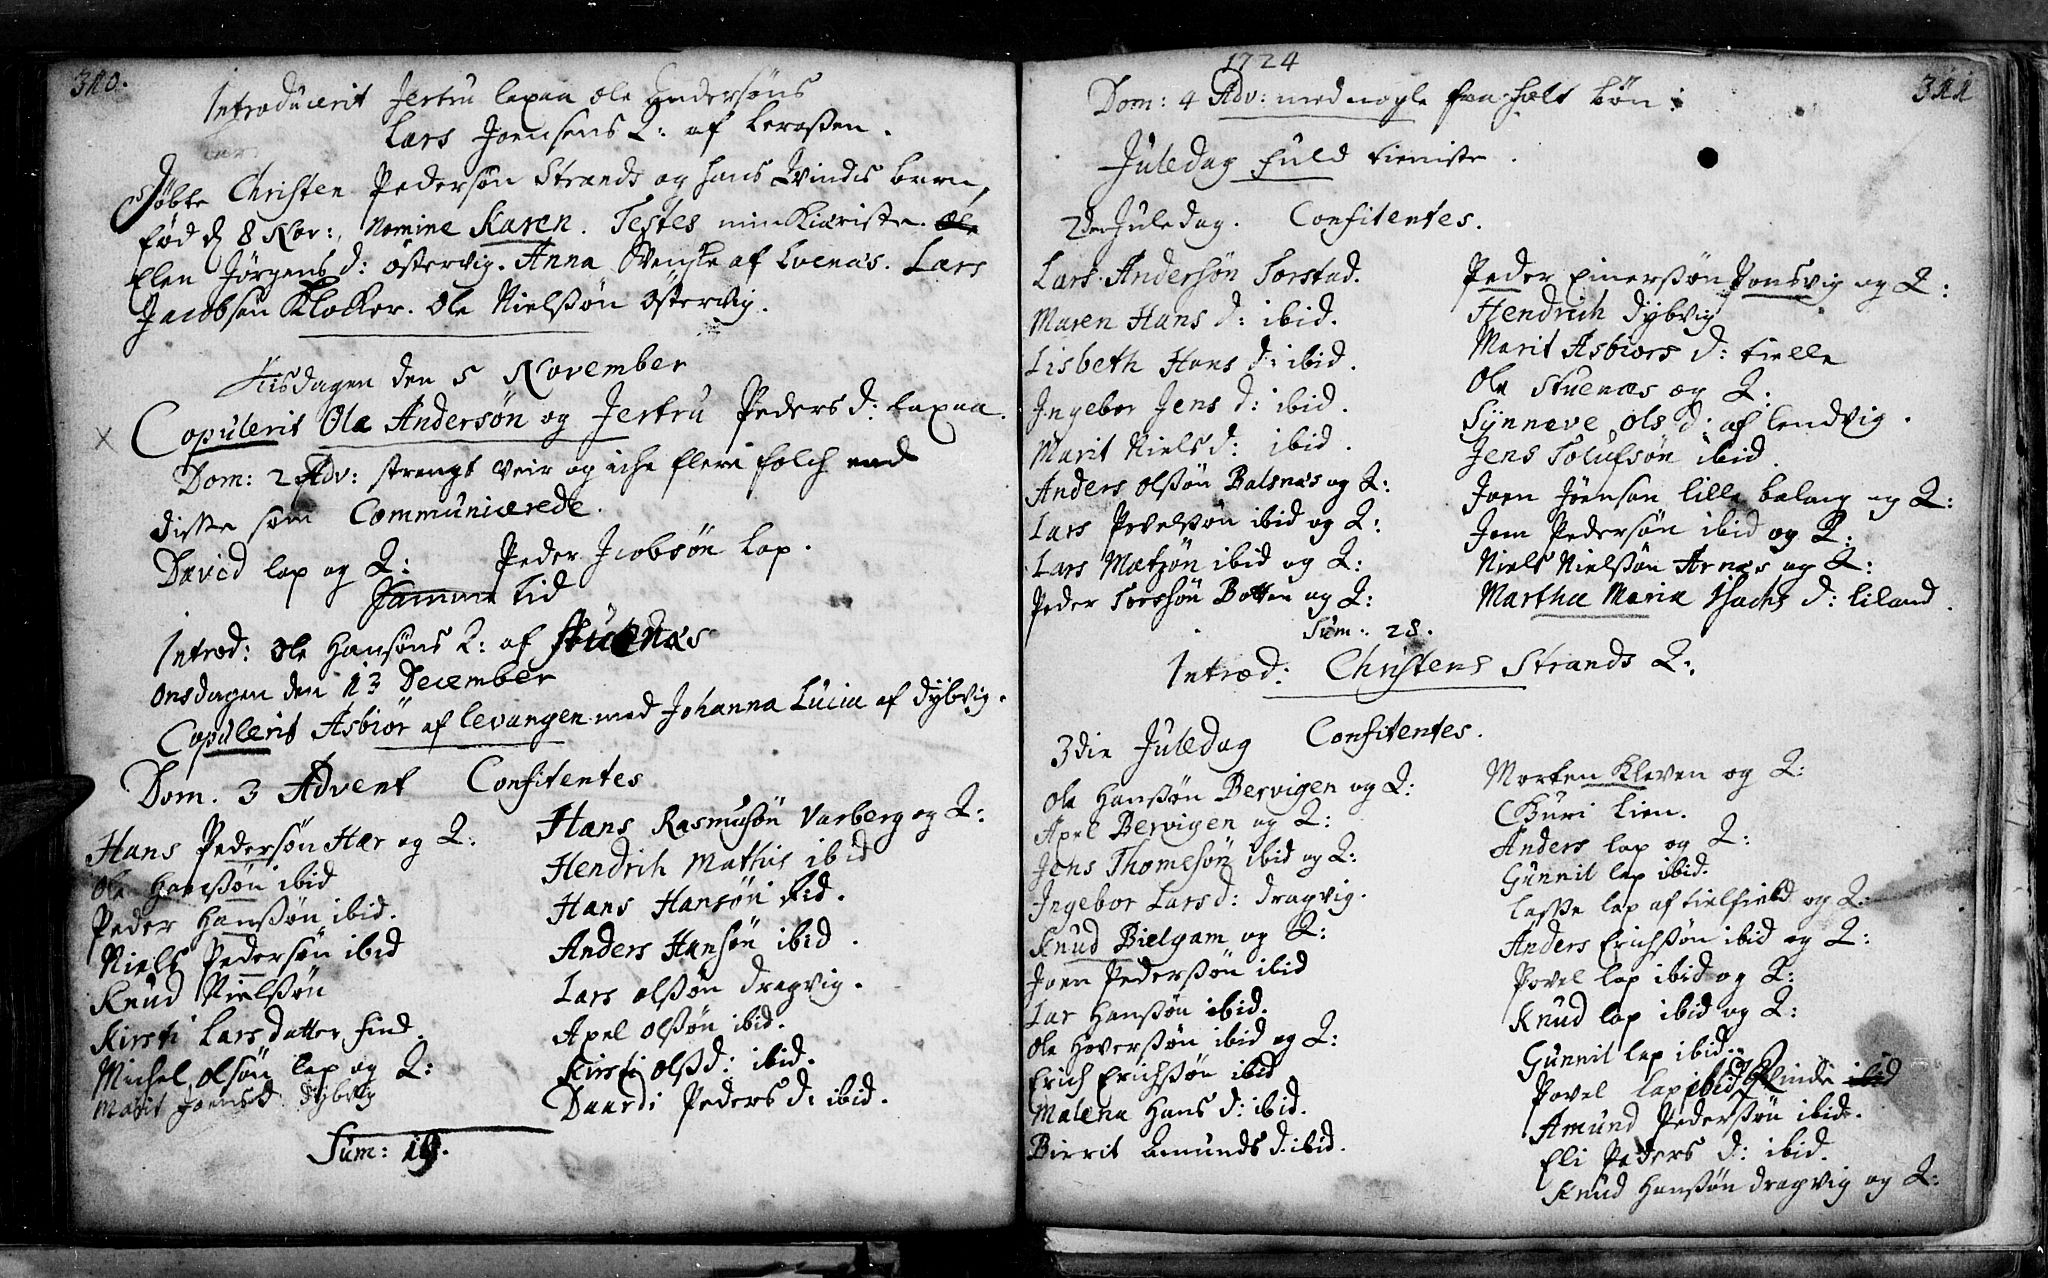 310.
Introducerit Jertru lapaa ole Andersøns
Lars Joensens Q: af Leroßen.
Døbte Christen Pedersøn Strands og hans Qvindis barn,
fød d 8 Nov: Nomine Karen. Testes min Kiæriste. Ole
Elen Jørgens d: østervig. Anna Svenske af Lvenæs. Lars
Jacobsen Klocker. Ole Nielßøn Østervig.
Tisdagen den 5 November
Copulerit Ola Andersøn og Jertru Peders d: lapaa.
Dom: 2 Adv: strengt veir og iche flere folch end
diße som Communicerede.
David lap og Q: Peder Jcobsøn lap.
Samme tid
Introd: Ole Hansøns Q: af Stuenæs
Onsdagen den 13 December
Copulerit Asbiør af levangen med Johanna Lucia af dybvig.
Dom. 3 Advent Confitentes
Hans Pedersøn Hær og Q:
Ole Hanßøn ibid
Peder Hanßøn ibid.
Niels Pedersøn ibid
Knud Nielßøn
Kirsti Lars datter find.
Michel olsøn lap og Q:
Marit Joens d dybvig
Hans Rasmusøn Varberg og Q:
Hendrich Mathis ibid
Hans Hansøn ibid.
Anders Hansøn ibid.
Lars olßøn dragvig.
Axel Olßøn ibid.
Kirsti olß d: ibid.
Daardi Peders d: ibid.
Sum: 19.
1724
311
Dom: 4 Adv: med nogle faa holt bøn:
Juledag fuld tieniste.
2den Juledag. Confitentes.
Lars Andersøn Torstad.
Maren Hans d: ibid.
Lisbeth Hans d: ibid.
Ingebor Jens d: ibid.
Marit Niels d: ibid.
Anders olßøn Balsnæs og Q:
Lars Povelßøn ibid og Q:
Lars Matzøn ibid og Q:
Peder Torsßøn Botten og Q:
Peder Einerßøn Ponsvig og Q:
Hendrich dybvig
Marit Asbiørs d: tielle
Ole Stuenæs og Q.
Synneve Ols d: af lendvig.
Jens Tolufsøn ibid.
Joen Jørensøn lille balarg og Q:
Joen Pedersøn ibid og Q.
Niels Nielßøn Arnæs og Q:
Martha Maria Isachs d: liland.
Sum: 28.
Introd: Christens Strands Q:
3die Juledag Confitentes.
Ole Hanßøn Bervigen og Q:
Axel Bervigen og Q:
Jens Thomesøn ibid og Q:
Ingebor Lars d: dragvig.
Knud Bielgam og Q:
Joen Pederßøn ibid
Lar Hanßøn ibid.
Ole Hoverßøn ibid og Q:
Erich Erichßøn ibid
Malena Hans d: ibid.
Birrit Amunds d: ibid.
Morten Kleven og Q:
Guri Lien.
Anders lap og Q:
Gunnil lap ibid.
Laße lap af tielfield og Q:
Anders Erichßøn ibid og Q:
Povel lap ibid og Q:
Knud lap ibid og Q:
Gunnil lap ibid.
Povel lap ibid Qvinde ibid
Amund Pederßøn ibid.
Eli Peders d: ibid.
Knud Hanßøn dragvig og Q: